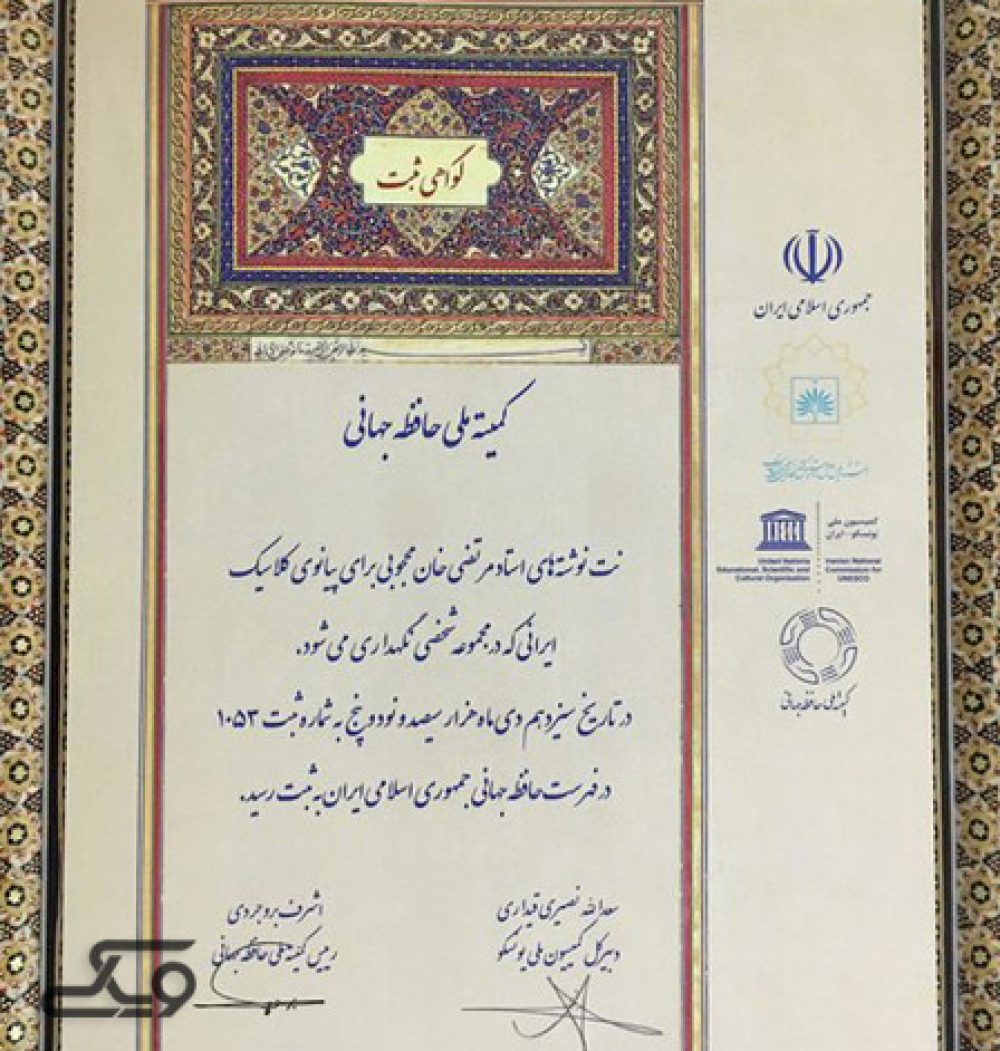 گواهی ثبت
کمیته ملی حافظه جهانی
نت نوشته‌های استاد مرتضی خان محجوبی برای پیانوی کلاسیک
ایرانی که در مجموعه شخصی نگهداری می شود،
در تاریخ سیزدهم دی ماه هزار سیصد و نود و پنج به شماره ثبت ۱۰۵۳
در فهرست حافظه جهانی جمهوری اسلامی ایران به ثبت رسید.
سعدالله نصیری قیداری
دبیرکل کمیسیون ملی یونسکو
اشرف بروجردی
رییس کمیته ملی حافظه جهانی
جمهوری اسلامی ایران
United Nations
Educational, Scientific and
Cultural Organization
کمیسیون ملی
یونسکو - ایران
Iranian National
Commission for
UNESCO
کمیته ملی حافظه جهانی